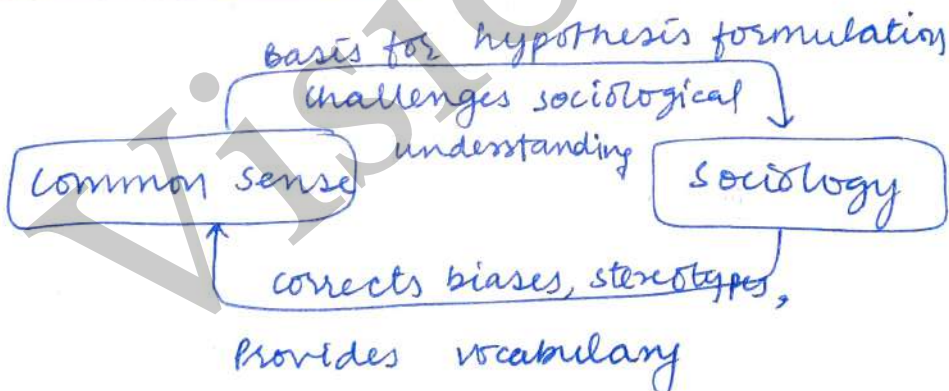 Basis for hypothesis formulation
challenges sociological
understanding
common sense
sociology
corrects biases, stereotypes,
Provides vocabulary